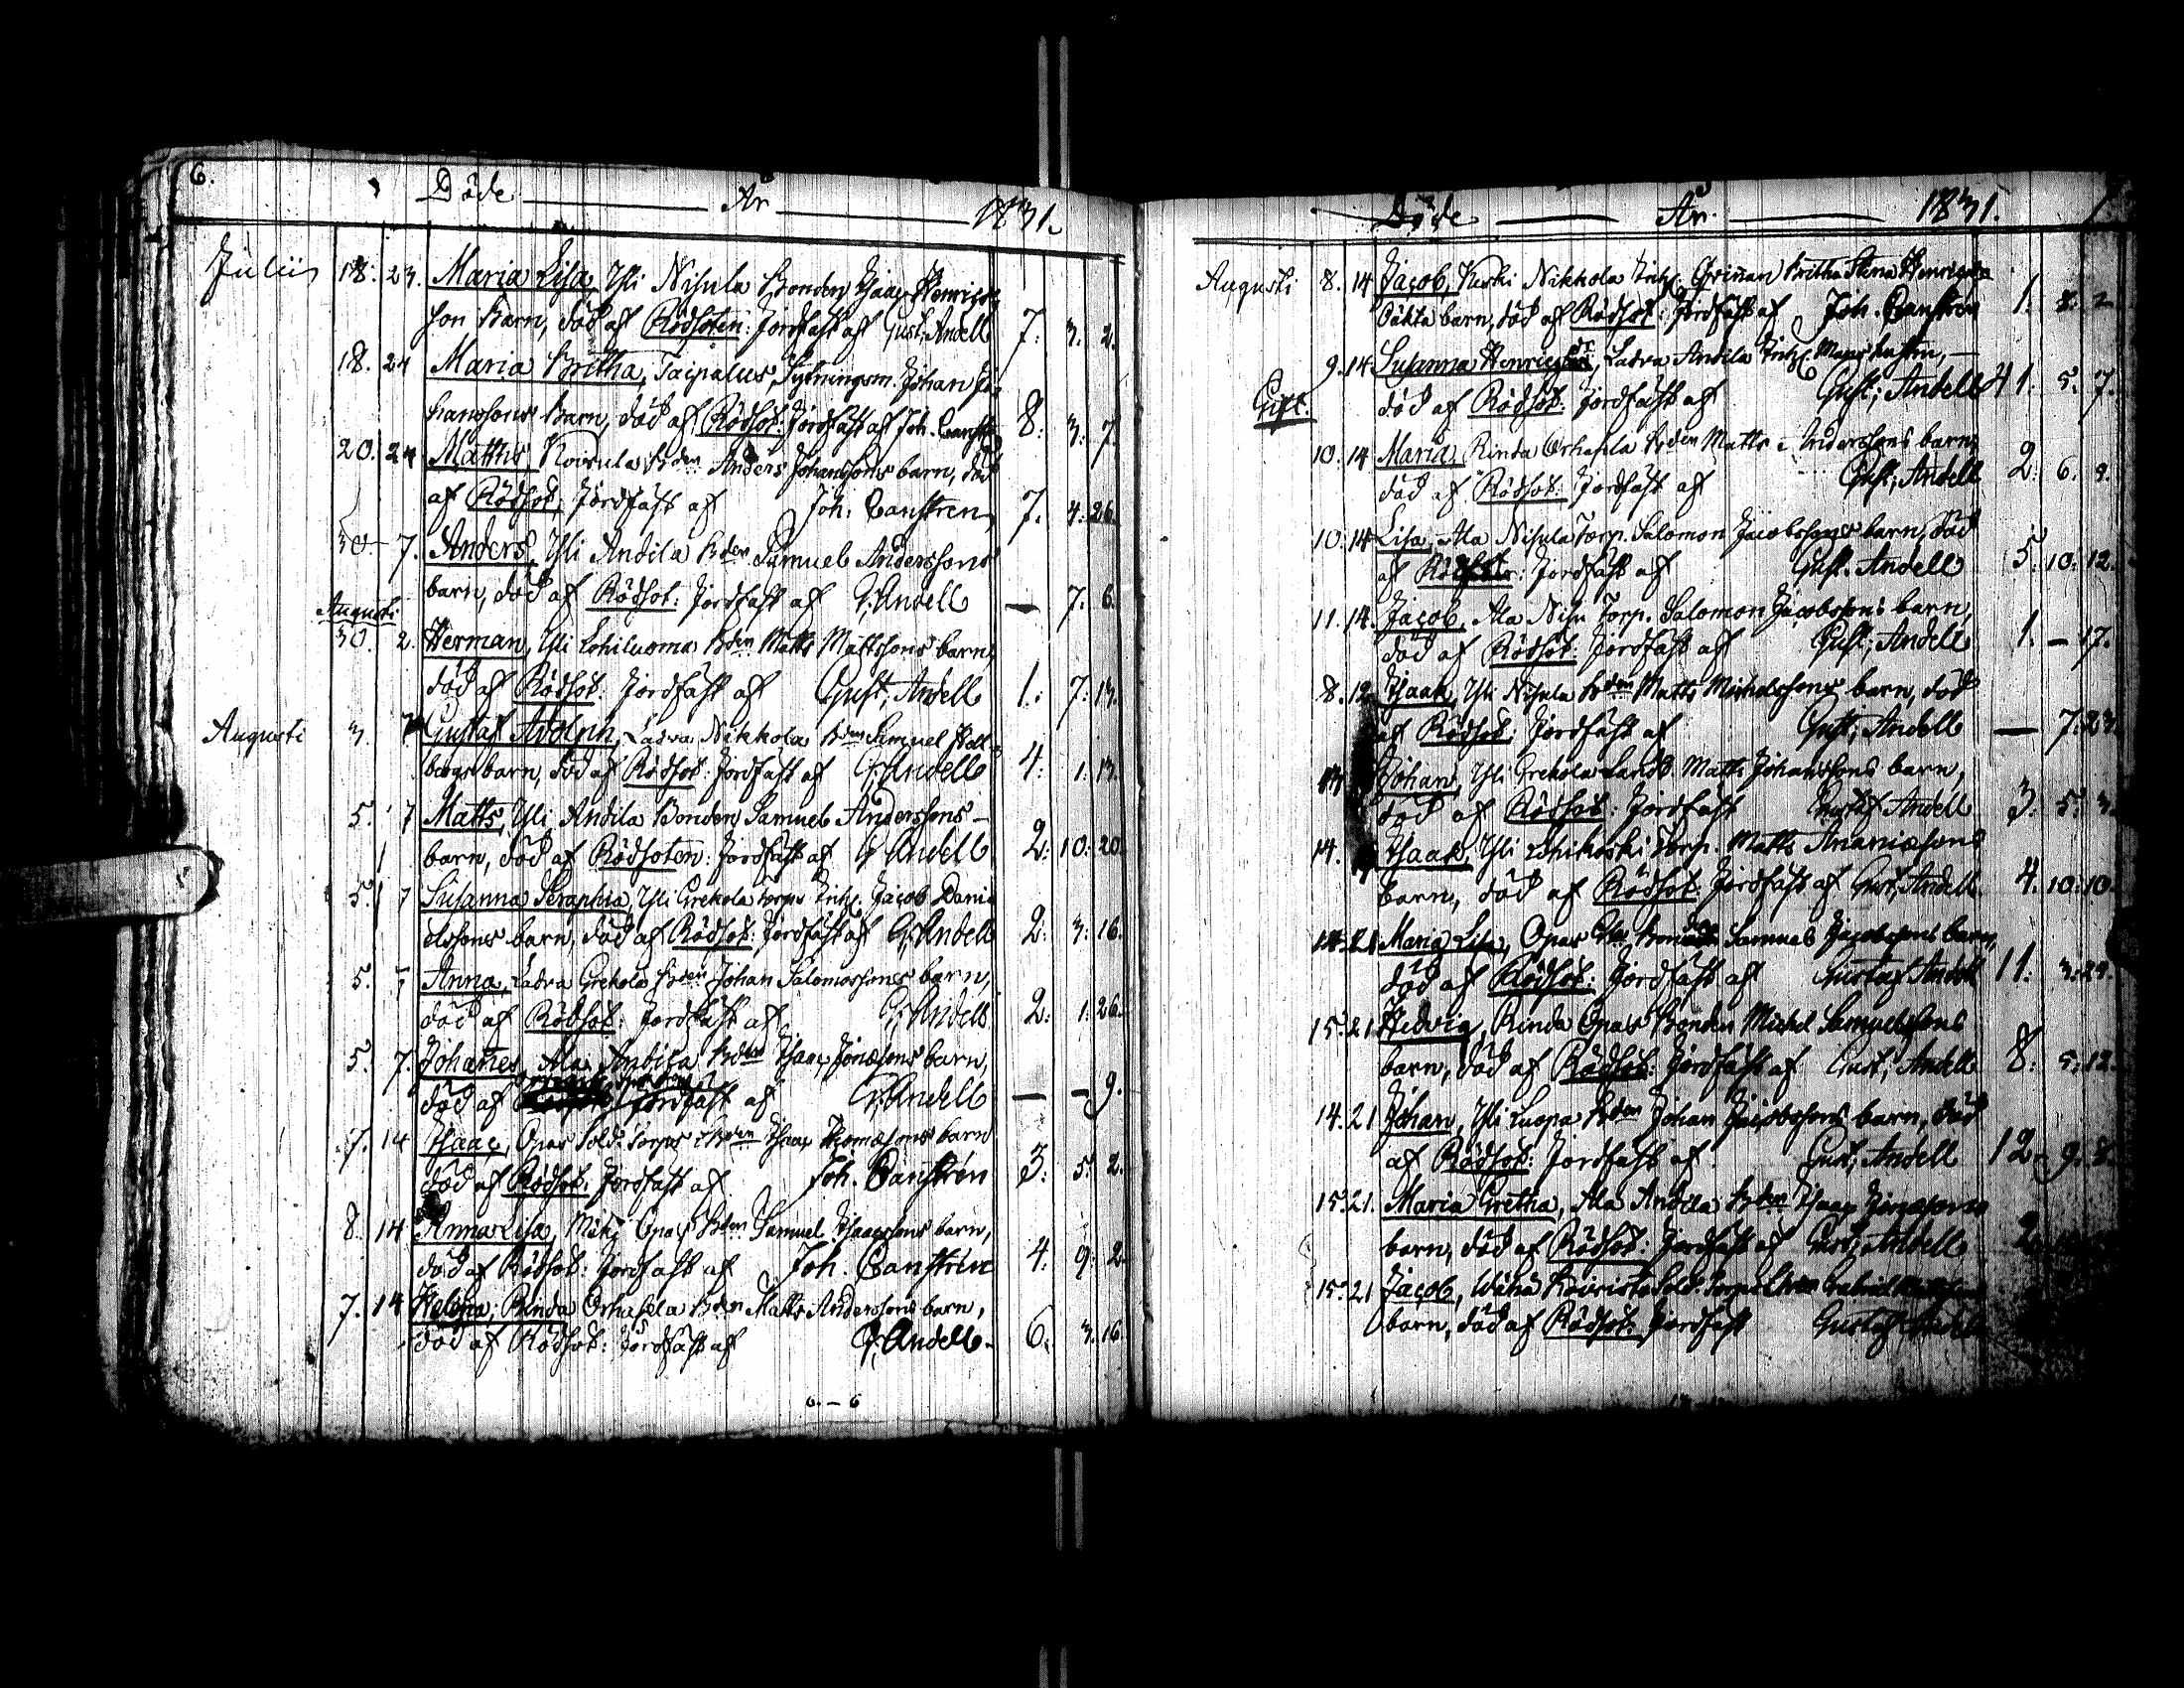 6.
Döde År 1831.
Julii 18. 23. Maria Lisa, Yli Nisula Bonden Isaac Henrics
son Barn, död af Rödsoten: Jordfäst af Gust. Andell 7. 3. 2.
18. 24 Maria Britha, Taipalus, Sytningsm. Johan Jo
hanssons Barn, död af Rödsot: Jordfäst af Joh. Canstrén 8. 3. 7.
20. 24 Matths Koivula Bden Anders Johanssons barn, död
af Rödsot, Jordfäst af Joh. Canstren 7. 4. 26.
30. 7. Anders, Yli Andila Bden Samuel Anderssons
barn, död af Rödsot: Jordfäst af G. Andell — 7. 6.
Augusti
30. 2. Herman, Yli Lohiluoma Bden Matts Mattssons barn,
död af Rödsot: Jordfäst af Gust; Andell 1. 7. 13.
Augusti 3. 7 Gustaf Adolph, Ladva Nikkola Bden Samuel Hall
bergs barn, död af Rödsot: Jordfäst af G. Andell 4. 1. 13.
5. 7 Matts, Yli Andila Bonden Samuel Anderssons
barn, död af Rödsoten: Jordfäst af G Andell 2. 10. 20.
5. 7 Susanna Seraphia, Yli Grekola torps Inh. Jacob Dani
elssons barn, död af Rödsot: Jordfäst af G. Andell 2. 3. 16.
5. 7 Anna, Ladva Grekola Bden Johan Salomossons barn,
död af Rödsot: Jordfäst af G. Andell 2. 1. 26.
5. 7. Johanes, Ala Andila Bden Isaac Jonæsons barn,
död af Jordfäst af G. Andell — — 9.
7. 14 Isaac, Opas Sold. Torps Bden Isaac Thomæsons barn
död af Rödsot: Jordfäst af Joh. Canstrén 3. 5. 2.
8. 14 Anna Lisa, Mäki Opas Bden Samuel Isaacssons barn,
död af Rödsot: Jordfäst af Joh. Canstrén 4. 9. 2.
7. 14 Helena, Rinda Orhasela Bden Matts Anderssons barn,
död af Rödsot: Jordfäst af G. Andell. 6. 3. 16
6. — 6
Döde År. 1831.
Augusti 8. 14 Jacob, Keski Nikkola Inh. Qvinnan Britha Stina Henricsdr
Oäkta barn, död af Rödsot: Jordfäst af Joh. Canstren 1. 8. 2
9. 14. Susanna Henricsdr, Ladva Andila Inh.
Gift. död af Rödsot: Jordfäst af Gust; Andell 41. 5. 7.
10. 14 Maria, Rinda Orhasela Bden Matts Anderssons barn,
död af Rödsot: Jordfäst af Gust; Andell 2. 6. 9.
10. 14 Lisa, Ala Nisula Torp. Salomon Jacobssons barn, död
af Rödsot: Jordfäst af Gust. Andell 5. 10. 12.
11. 14. Jacob, Ala Nisu Torp. Salomon Jacobssons barn,
död af Rödsot: Jordfäst af Gust; Andell 1. — 17.
8. 12 Isaak, Yli Nisula Bden Matts Michelssons barn, död
af Rödsot: Jordfäst af Gust; Andell — 7. 23.
13 Johan, Yli Grekola Landb. Matts Johanssons barn,
död af Rödsot: Jordfäst Gustaf Andell 3. 5. 3.
14. Isaak, Yli Torp. Matts Ananiæsons
barn, död af Rödsot: Jordfäst af Gust; Andell 4. 10. 10.
14. 21 Maria Lisa, Opas Samuel Jacobssons barn,
död af Rödsot: Jordfäst af Gustaf Andell 11. 3. 29.
15. 21. Hedvig, Rinda Opas Bonden Michel Samuelssons
barn, död af Rödsot: Jordfäst af Gust; Andell 8. 5. 12.
14. 21 Johan, Yli Luopa Bden Johan Jacobssons barn, död
af Rödsot: Jordfäst af Gust; Andell 12. 9. 8.
15. 21. Maria Gretha, Ala Andila Bden Isaac Jonæsons
barn, död af Rödsot: Jordfäst af Gust; Andell 2.
15. 21 Jacob, Wähä Koivisto Sold. Torps Gabriel
barn, död af Rödsot: Jordfäst Gustaf Andell